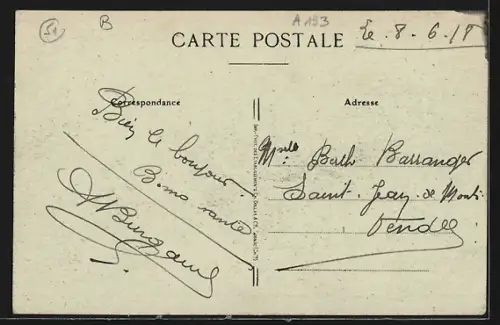 51
B
A 193
CARTE POSTALE
le 8-6-18
Correspondance
Adresse
Bien le bonjour
Bonne santé
Mlle Berth Barranger
Saint-Jean-de-Mont
Vendée